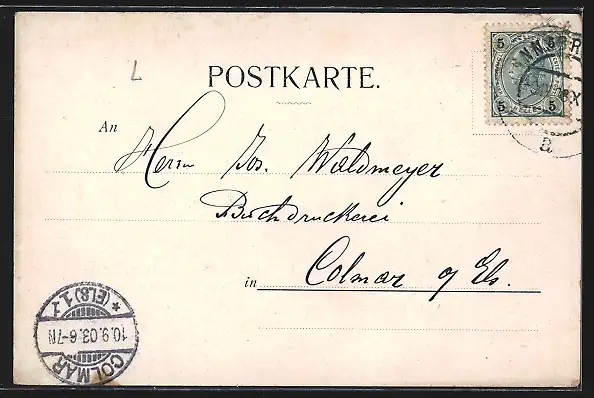 L
POSTKARTE.
5 5
5 5
INNSBR
a
An Herrn Jos. Waldmeyer
Buchdruckerei
in Colmar i/ Els.
COLMAR
10.9.03.6-7N
* (ELS) 1.f